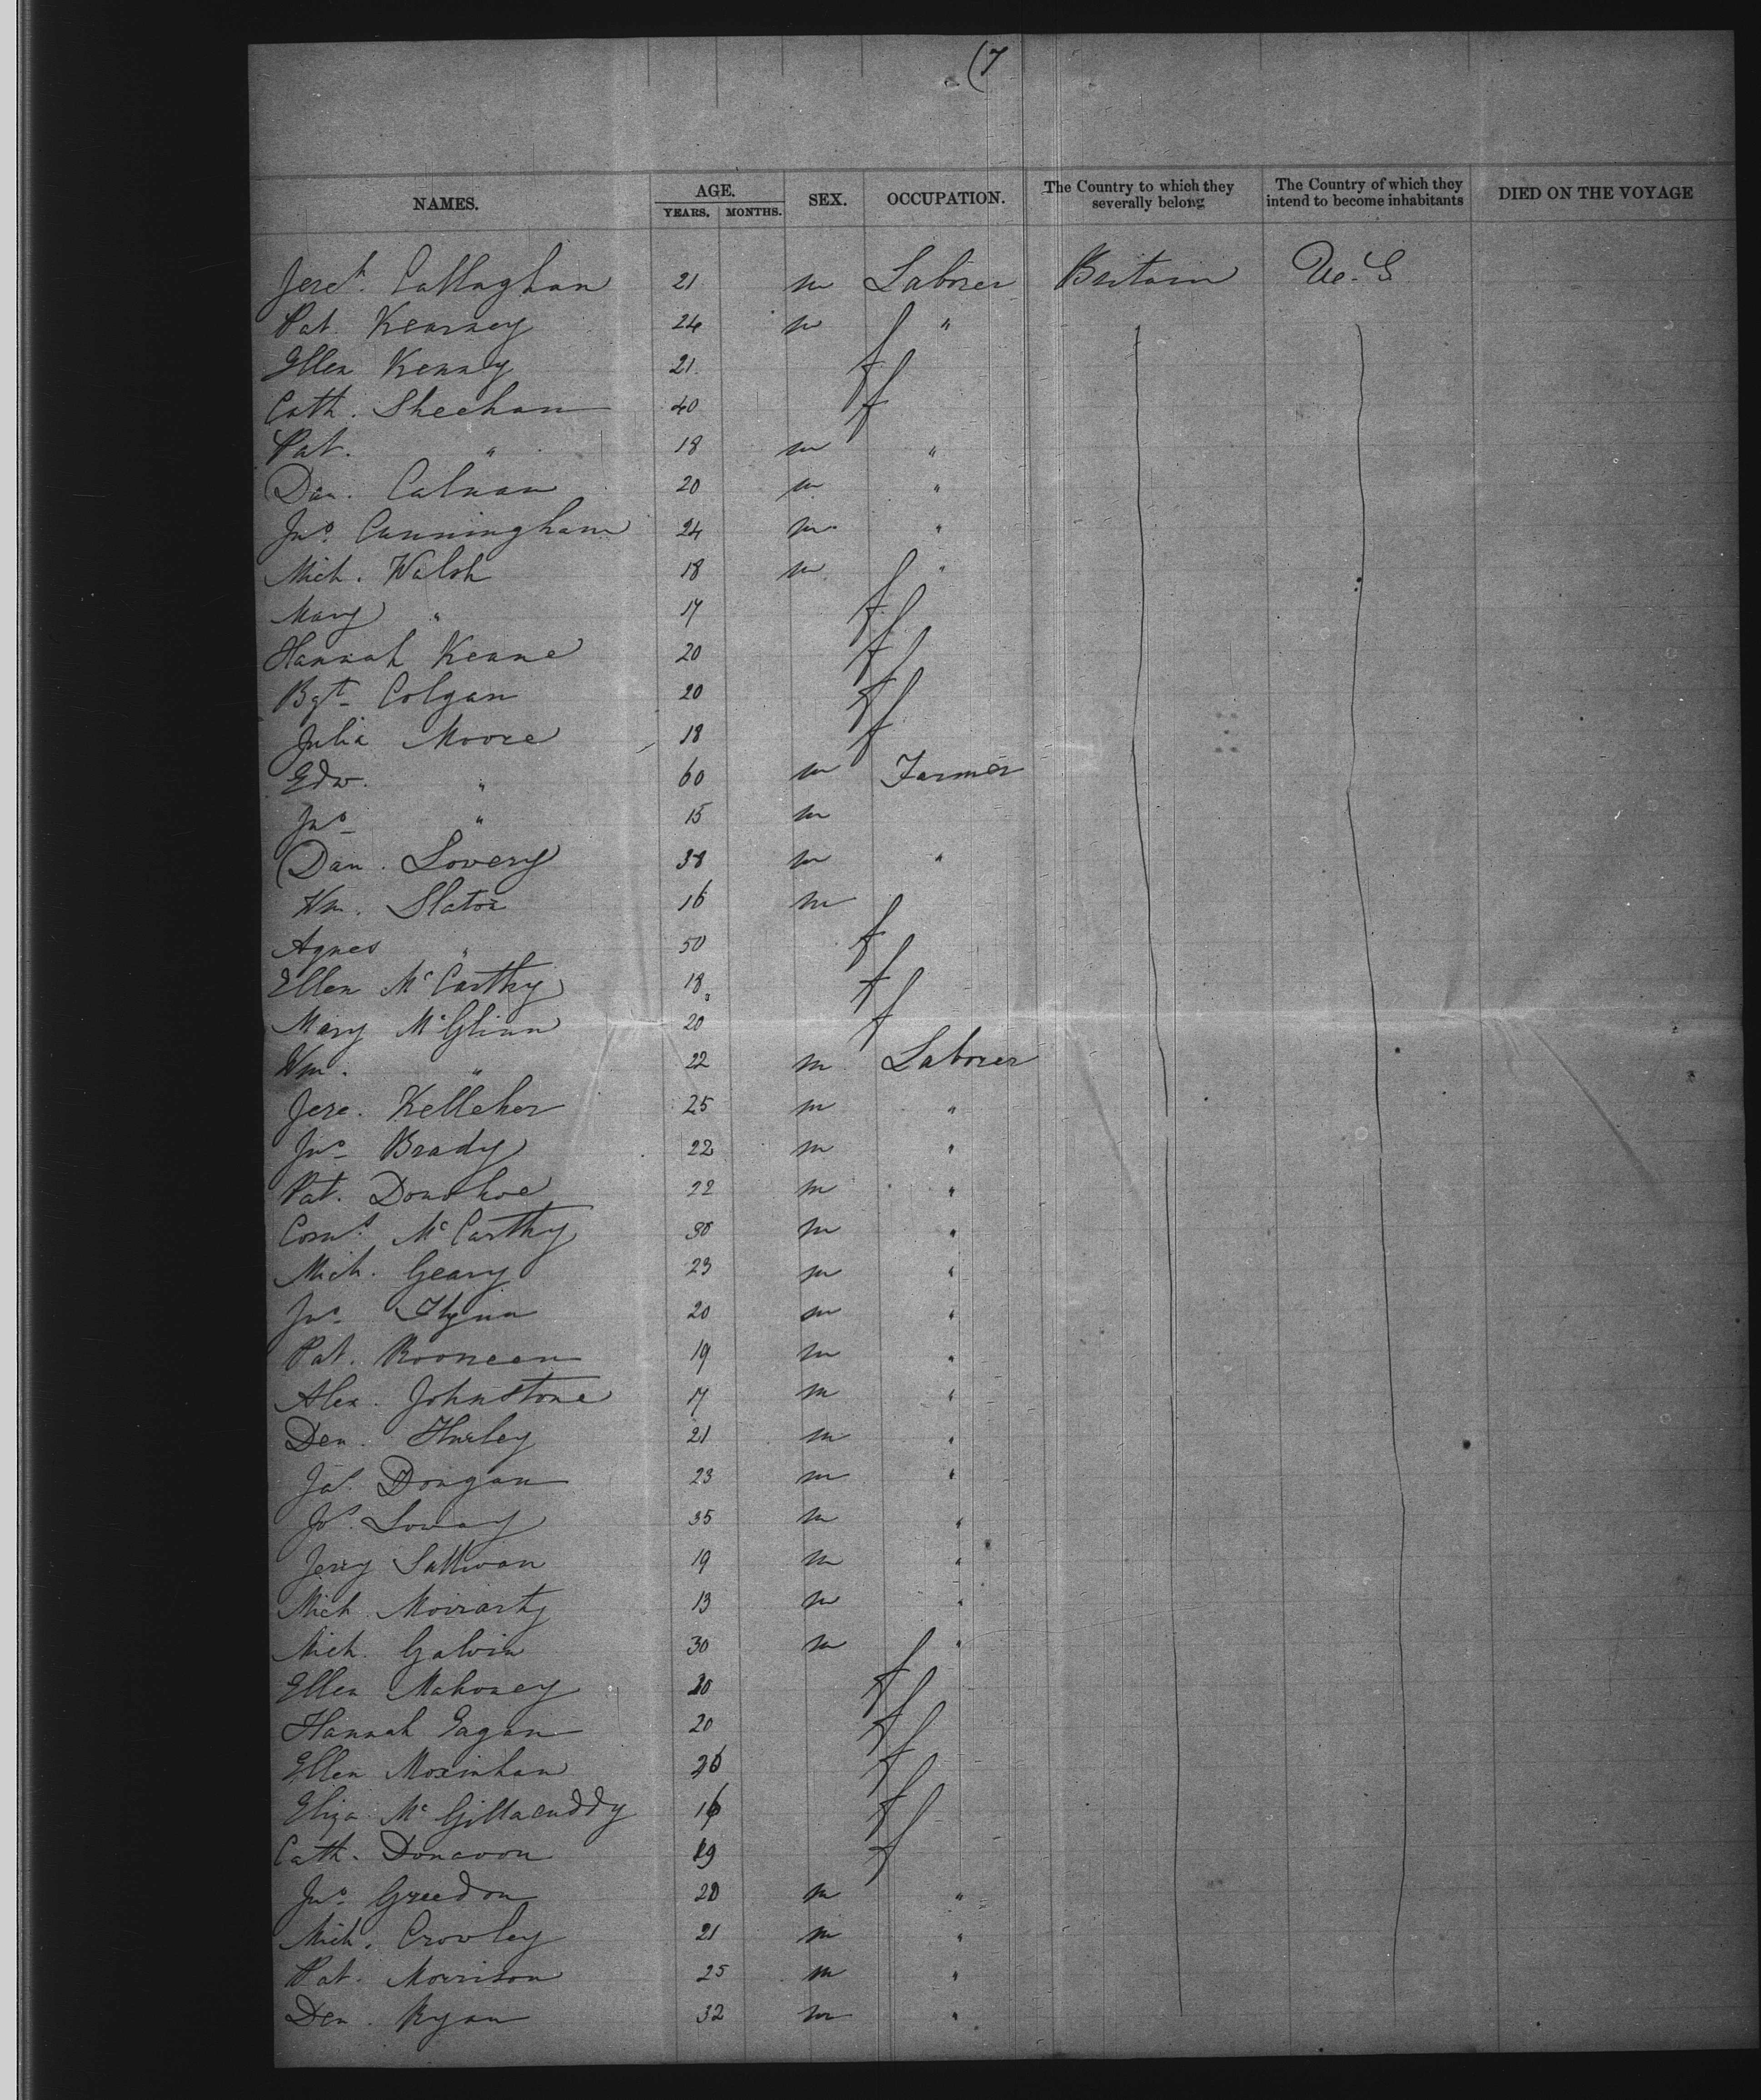 (7
NAMES. AGE. YEARS. MONTHS. SEX. OCCUPATION. The Country to which they severally belong The Country of which they intend to become inhabitants DIED ON THE VOYAGE
Jereh. Callaghan 21 m Laborer Britain U. S
Pat. Kearney 24 m "
Ellen Kenny 21 f
Cath. Sheehan 40 f
Pat. " 18 m "
Dan. Calnan 20 m "
Jno. Cunningham 24 m "
Mich. Walsh 18 m "
Mary " 17 f
Hannah Keane 20 f
Bgt. Colgan 20 f
Julia Moore 18 f
Edw. " 60 m Farmer
Jno " 15 m
Dan. Lovery 38 m "
Wm. Slator 16 m
Agnes " 50 f
Ellen McCarthy 18 f
Mary McGlinn 20 f
Wm. " 22 m Laborer
Jere. Kelleher 25 m "
Jno Brady 22 m "
Pat. Donohoe 22 m "
Corns. McCarthy 30 m "
Mich. Geary 23 m "
Jno Flynn 20 m "
Pat. Rooneen 19 m "
Alex. Johnstone 17 m "
Den. Hurley 21 m "
Jas. Dongan 23 m "
Jos. Loway 35 m "
Jerry Sullivan 19 m "
Mich. Moriarty 13 m "
Mich. Galvin 30 m "
Ellen Mahoney 20 f
Hannah Eagan 20 f
Ellen Moxinhan f
Eliza McGillacuddy 16 f
Cath. Donavon 19 f
Jno. Greedon 20 m "
Mich. Crowley 21 m "
Pat. Morrison 25 m "
Den. Ryan 32 m "